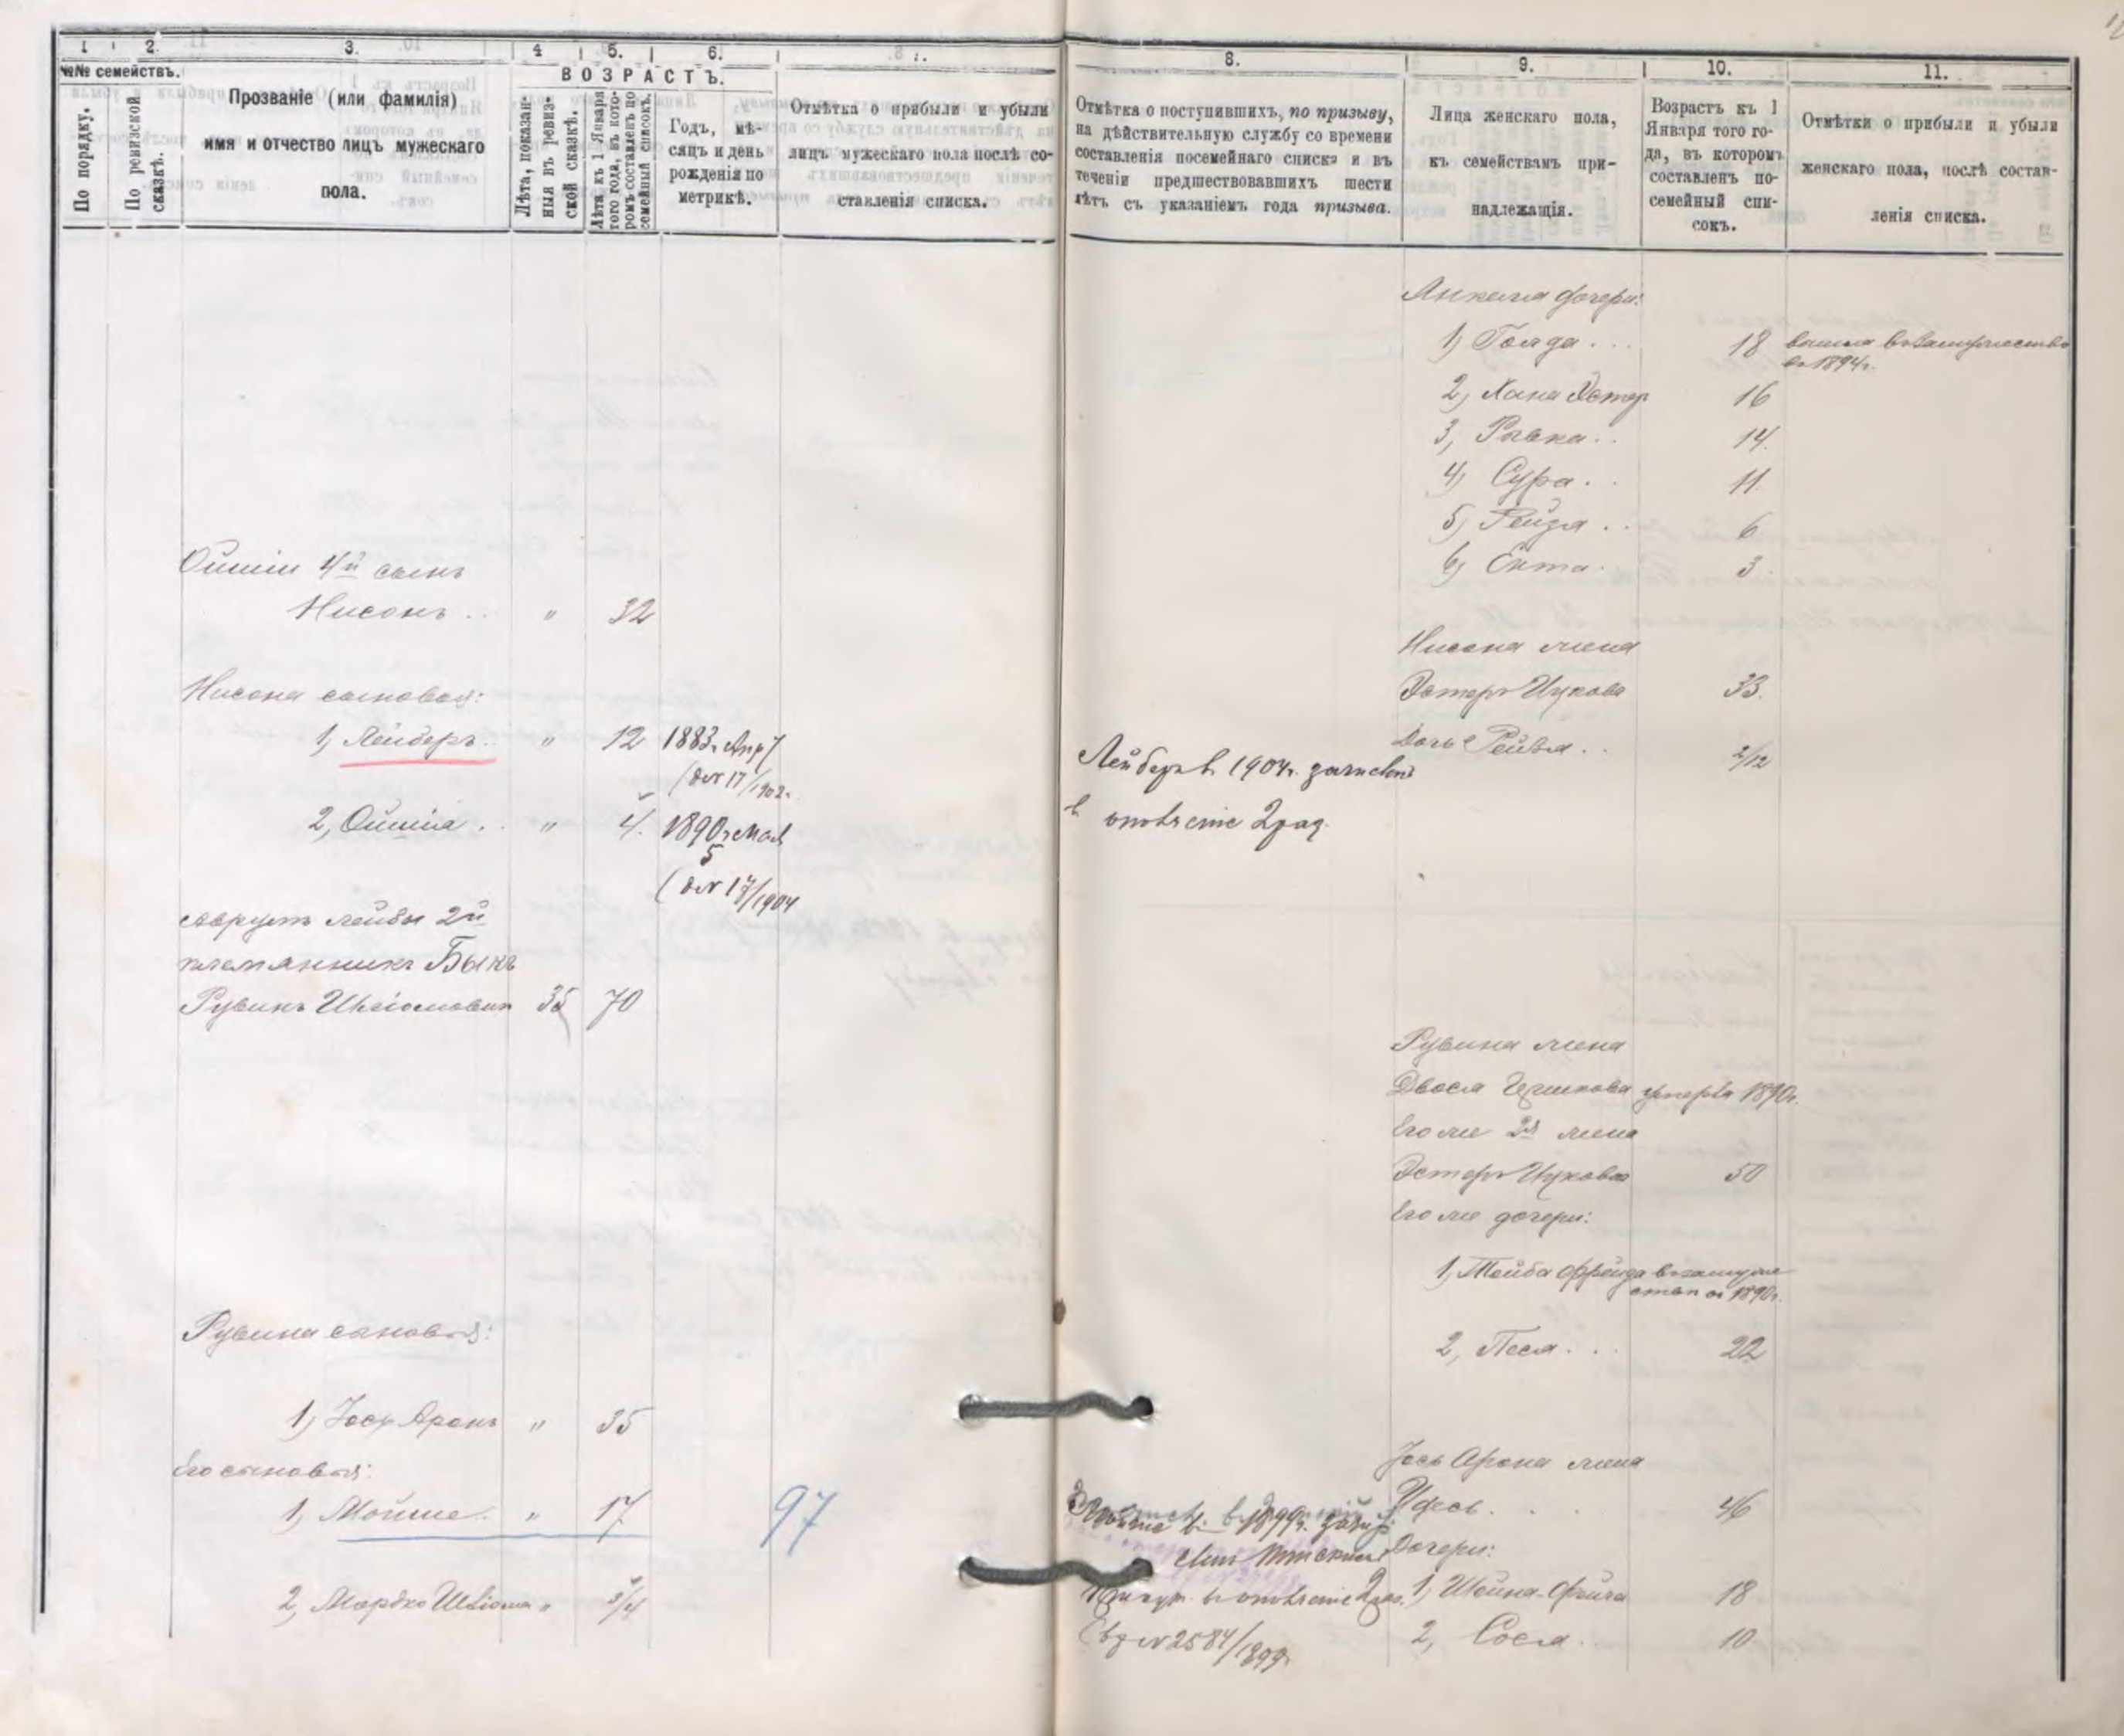 1
2.
3.
4
5.
6.
8.
9.
10.
11.
№№ семействъ.
По порядку.
По ревизской сказкѣ.
Прозваніе (или фамилія)
имя и отчество лицъ мужескаго
пола.
ВОЗРАСТЪ.
Лѣта, показан-
ныя въ ревиз-
ской сказкѣ.
Лѣта къ 1 Января
того года, въ кото-
ромъ составленъ по
семейный списокъ.
Годъ, мѣ-
сяцъ и день
рожденія по
метрикѣ.
Отмѣтка о прибыли и убыли
лицъ мужескаго пола послѣ со-
ставленія списка.
Отмѣтка о поступившихъ, по призыву,
на дѣйствительную службу со времени
составленія посемейнаго списка и въ
теченіи предшествовавшихъ шести
лѣтъ съ указаніемъ года призыва.
Лица женскаго пола,
къ семействамъ при-
надлежащія.
Возрастъ къ 1
Января того го-
да, въ которомъ
составленъ по-
семейный спи-
сокъ.
Отмѣтки о прибыли и убыли
женскаго пола, послѣ состав-
ленія списка.
Янкеля дочери:
1) Голда . . . 18 вышла въ замужество
въ 1894г.
2) Хана Эстер 16
3, Ривка . . 14.
4) Сура . . 11.
5) Рейзя . . 6
6) Ента . 3.
Ошіи 4й сынъ
Нисонъ . . " 32
Нисона жена
Эстеръ Ицкова 33.
Дочь Рейзя . . 2/12
Нисона сыновья:
1, Лейберъ . " 12 1883г. Апр 7
17/1902г.
2, Ошія . . " 4. 1890г. Мая
5
17/1904
Лейберъ в 1904г. зачислен
в ополченіе 2 раз.
Аврумъ Лейбы 2й
племянникъ Быкъ
Рувинъ 35 70
Рувина жена
Двося умерла 1890г.
Его же 2я жена
Эстеръ Ицкова 50
Его же дочери:
1, Тойба Фрейда в замуже
1890г.
2, Песя . . . 22
Рувина сыновья:
1, Іось Аронъ " 35
Его сыновья:
1, Мойше . " 17
97
2, Мордко " 3/4
Іось Арона жена
. . . 46
Дочери:
1, Шейна 18
2, Сося . . 10
в 1899г.
в ополченіе 2 раз.
№ 2584/1899г.